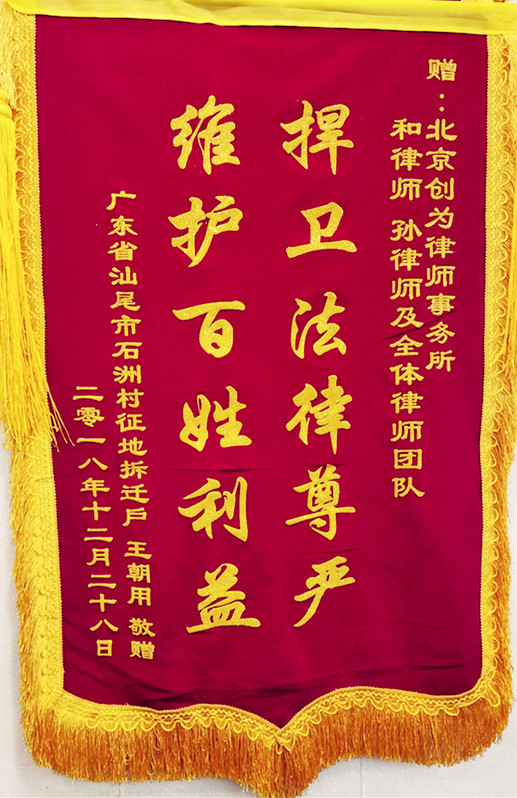 赠：北京创为律师事务所
和律师 孙律师及全体律师团队
捍卫法律尊严
维护百姓利益
广东省汕尾市石洲村征地拆迁户 王朝用 敬赠
二零一八年十二月二十八日